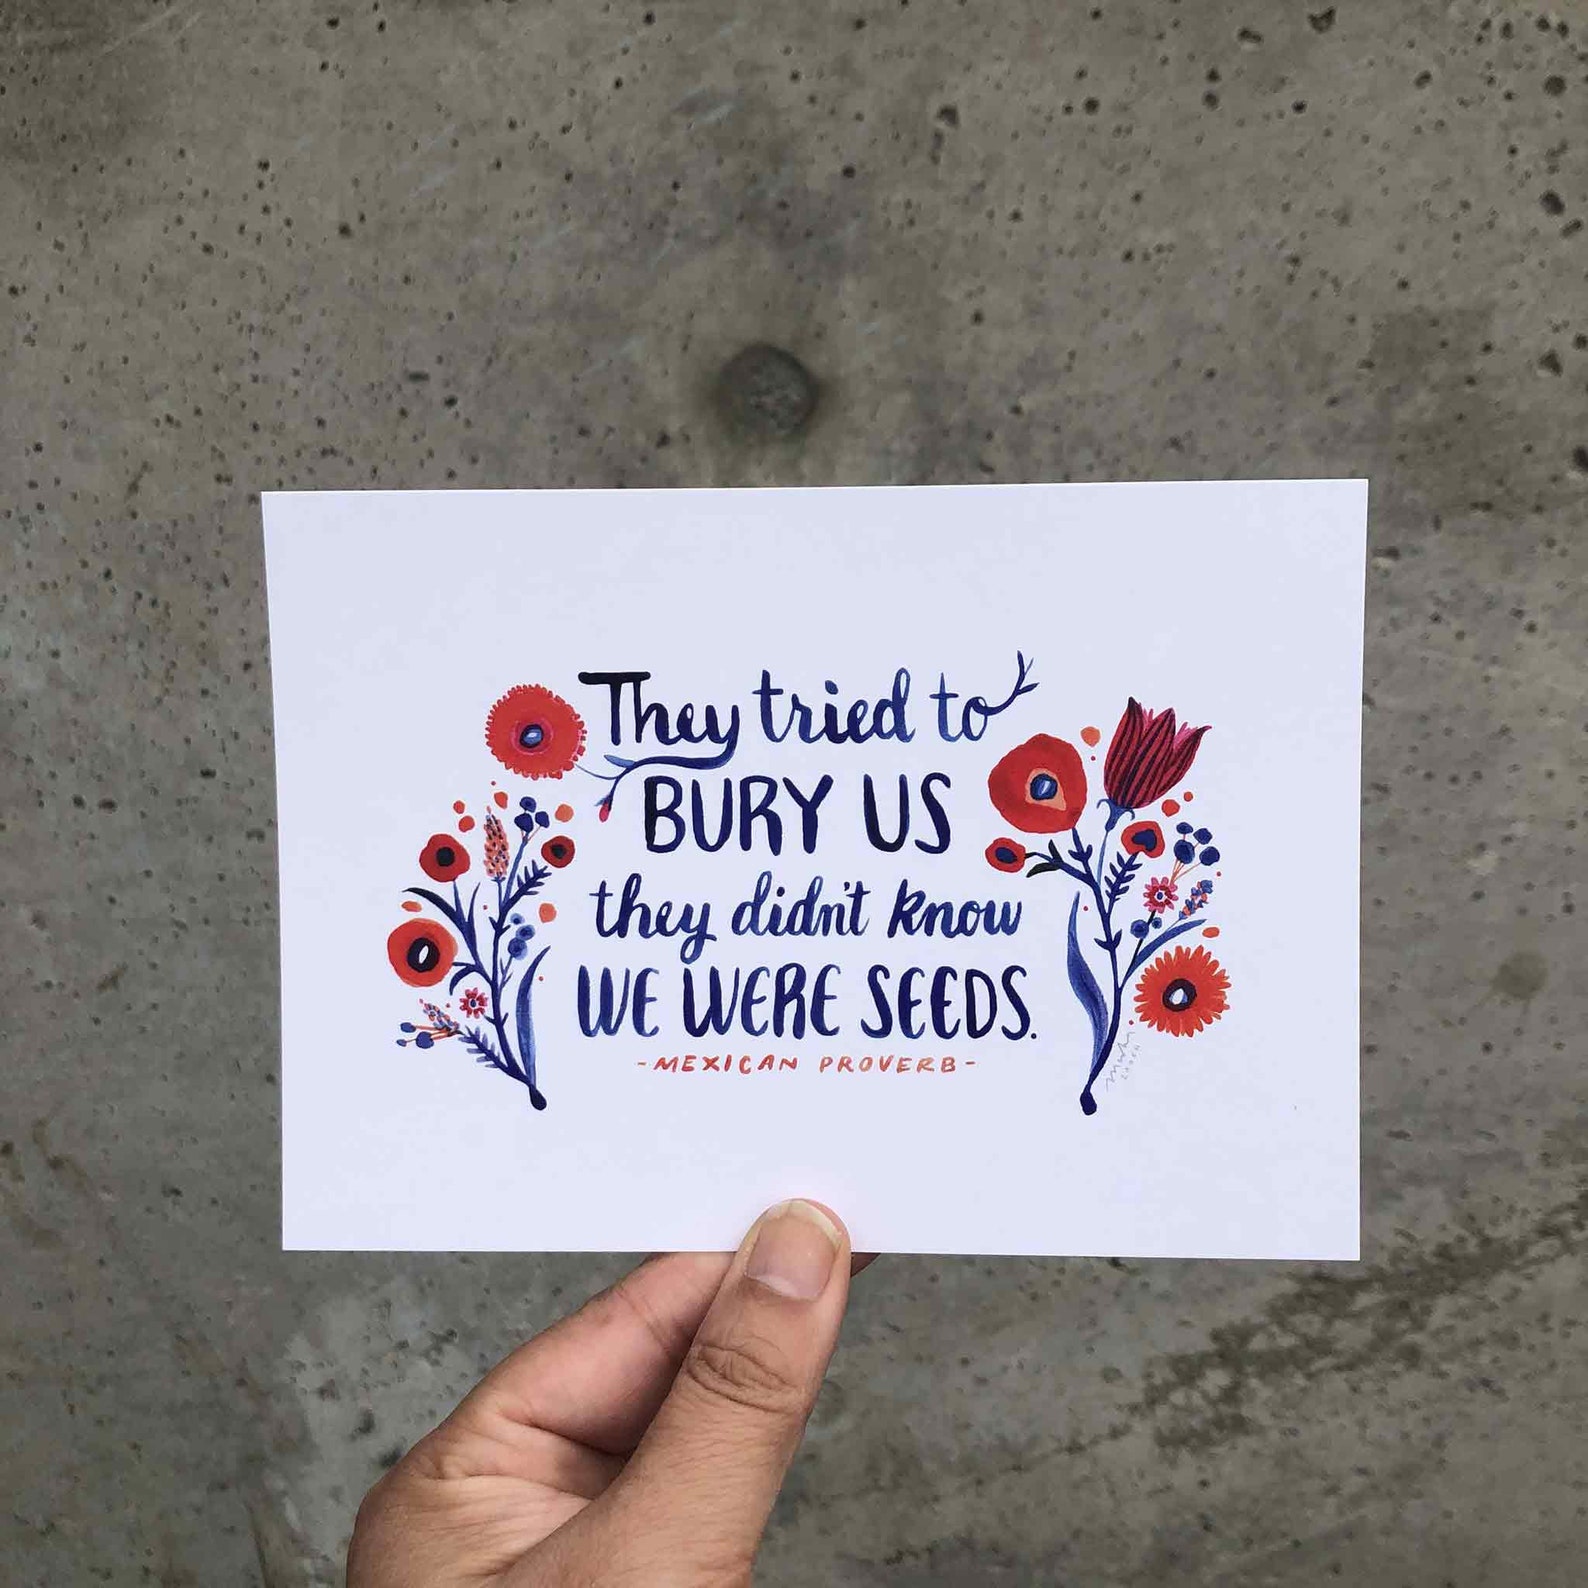 They tried to
BURY US
they didn't know
WE WERE SEEDS.
-MEXICAN PROVERB-